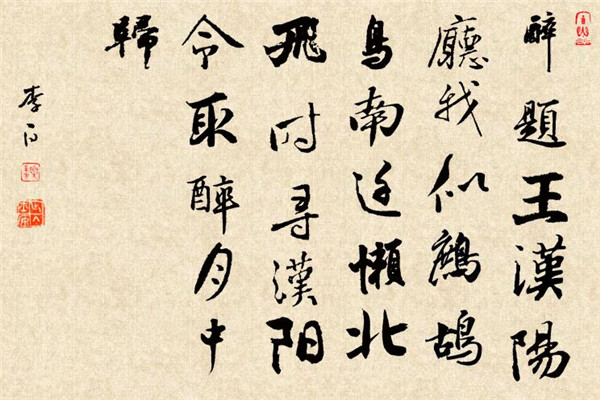 醉題王漢陽
廳我似鷓鴣
鳥南迁懶北
飛时寻漢阳
令取醉月中
歸
李白